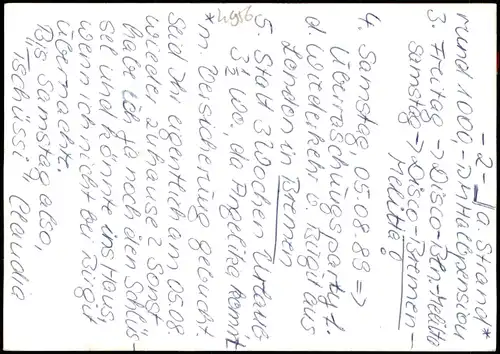 -2-
a. Strand*
rund 1000,- DM Halbpension
3. Freitag → Disco-Bln.-Melitta
Samstag → Disco-Bremen-
Melitta
4. Samstag, 05.08.89 ⇒
Überraschungsparty z.
d. Wiederkehr v. Birgit aus
London in Bremen
5. Statt 3 Wochen Urlaub
3½ Wo., da Angelika kommt
*m. Versicherung gebucht
Seid Ihr eigentlich am 05.08
wieder zuhause? Sonst
habe ich ja noch den Schlüs-
sel und könnte ins Haus,
wenn ich nicht bei Birgit
übernachte.
Bis Samstag also,
Tschüssi Claudia